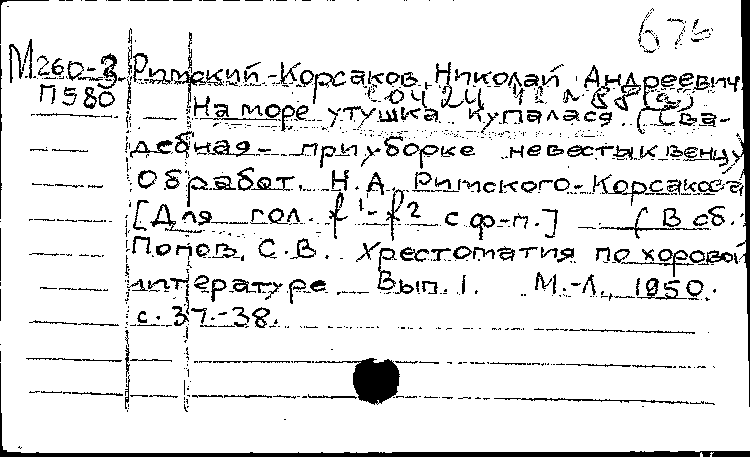 67б
М260-3 Римский-Корсаков, Николай Андреевич.
П580 соч 24 № 88 (а)
На море утушка купалася. (Сва-
дебная - при уборке невесты к венцу)
Обработ. Н.А. Римского-Корсакова
[Для гол. f¹-f² с ф-п.] (В сб.:
Попов, С.В. Хрестоматия по хоровой
литературе Вып. I. М.-Л., 1950.
с. 37.-38.